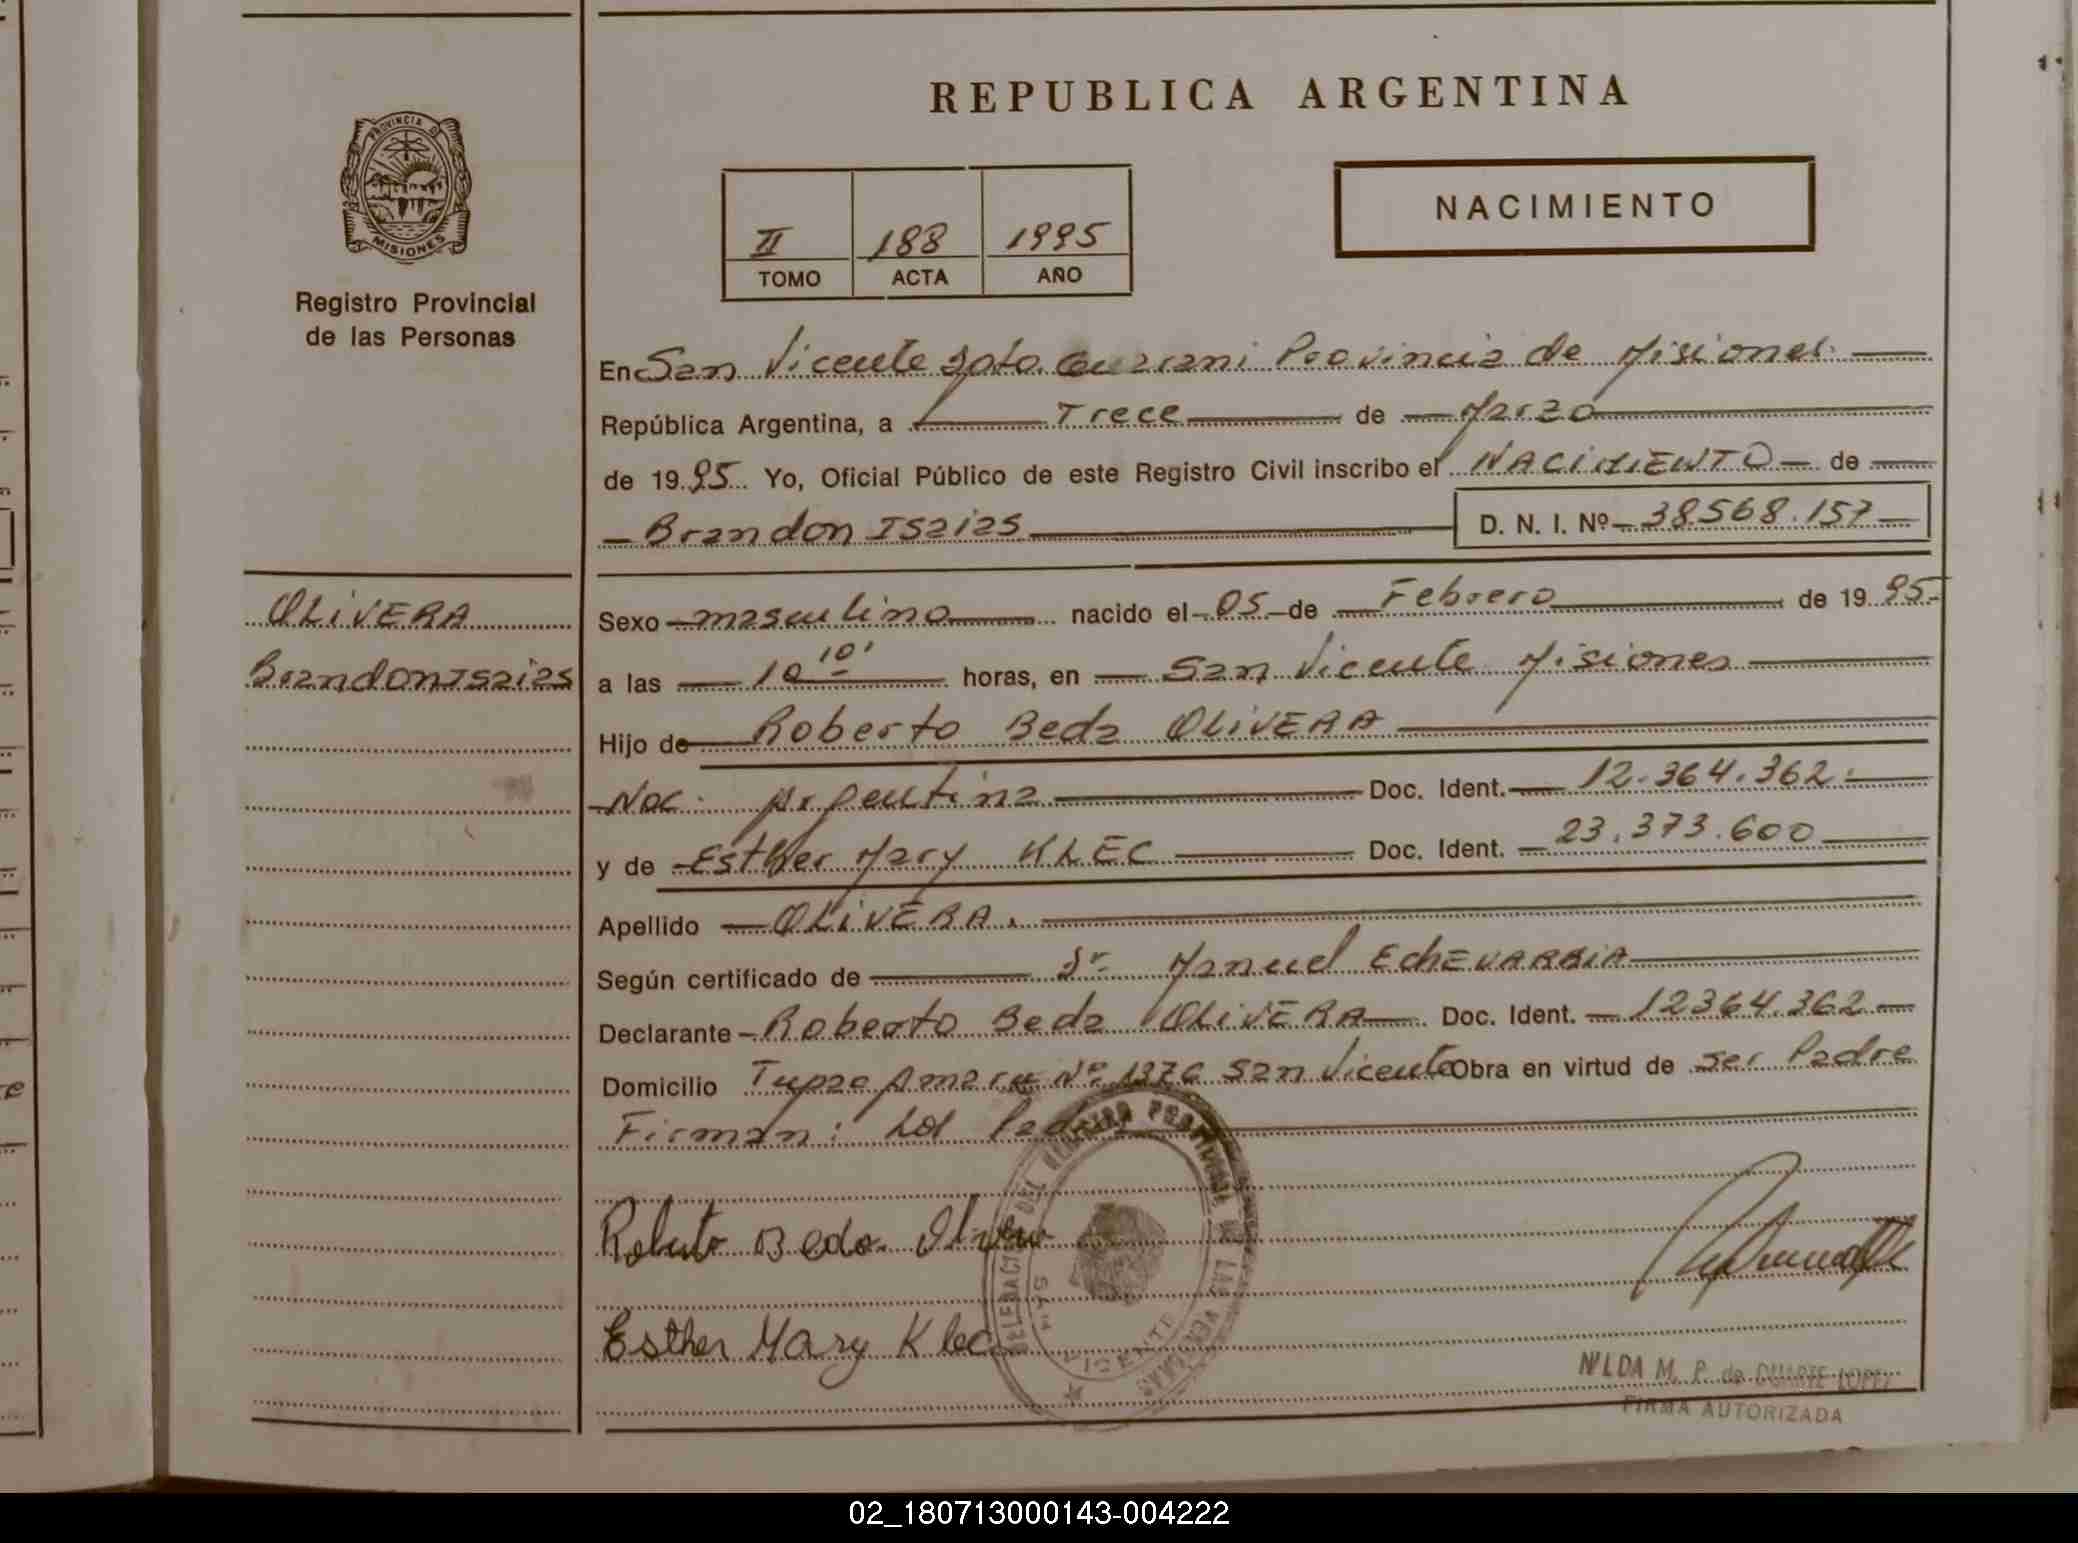 REPUBLICA ARGENTINA
PROVINCIA DE
MISIONES
Registro Provincial
de las Personas
II 188 1995
TOMO ACTA AÑO
NACIMIENTO
En San Vicente Dpto. Guarani Provincia de Misiones.
República Argentina, a Trece de Marzo
de 1995 Yo, Oficial Público de este Registro Civil inscribo el NACIMIENTO de
Brandon Isaias D. N. I. Nº 38.568.157
OLIVERA
Brandon Isaias
Sexo masculino nacido el 05 de Febrero de 1995
a las 10 10' horas, en San Vicente Misiones
Hijo de Roberto Beda OLIVERA
Nac. Argentina Doc. Ident. 12.364.362.
y de Esther Mary KLEC Doc. Ident. 23.373.600
Apellido OLIVERA.
Según certificado de Dr. Manuel EchEVARRIA
Declarante Roberto Beda OLIVERA Doc. Ident. 12364.362
Domicilio Tupac Amaru Nº 1376 San Vicente Obra en virtud de ser Padre
Firman: Los
Roberto Beda Olivera
Esther Mary Klec
DELEGACION DEL REGISTRO PROVINCIAL DE LAS PERSONAS
SAN VICENTE
NILDA M. P. de DUARTE LOPEZ
FIRMA AUTORIZADA
02_180713000143-004222